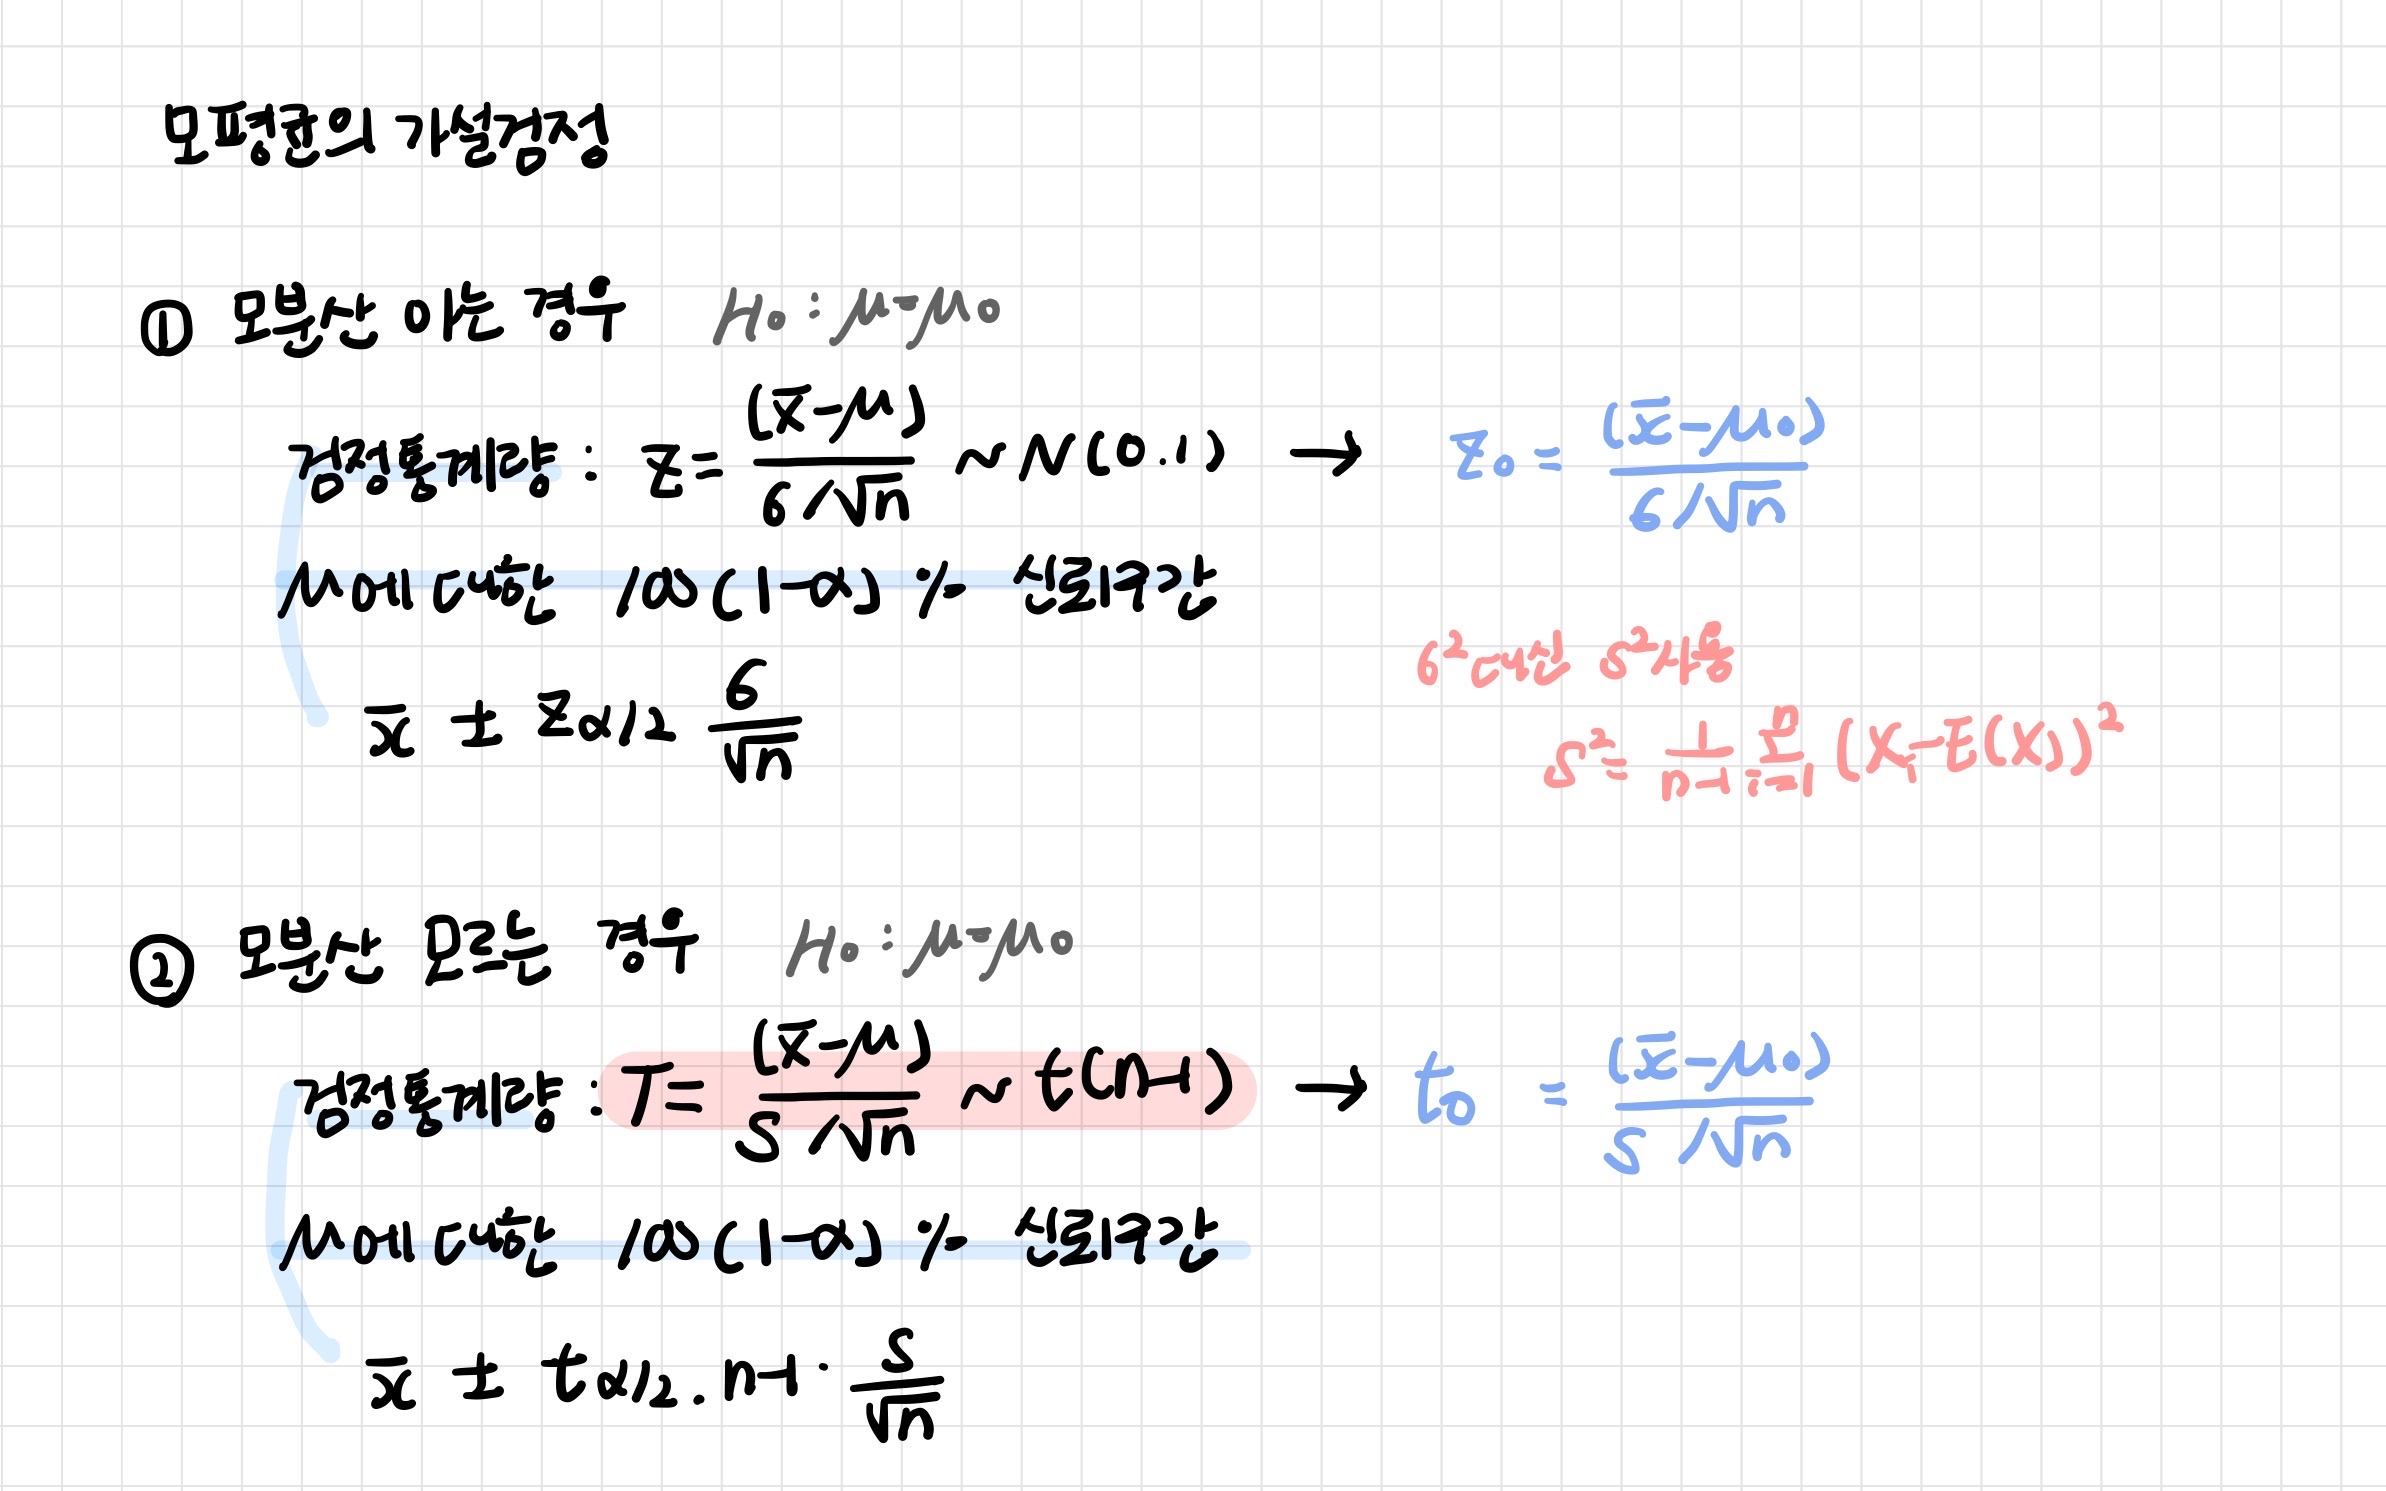 모평균의 가설검정
① 모분산 아는 경우 H₀ : μ=μ₀
검정통계량 : Z = (x̄-μ) / (σ/√n) ~ N(0.1) → Z₀ = (x̄-μ₀) / (σ/√n)
μ에 대한 100(1-α)% 신뢰구간
σ² 대신 s² 사용
x̄ ± Z α/2 σ/√n
s² = 1/(n-1) Σ_{i=1}^{n} (Xᵢ-E(X))²
② 모분산 모르는 경우 H₀ : μ=μ₀
검정통계량 : T = (x̄-μ) / (S/√n) ~ t(n-1) → t₀ = (x̄-μ₀) / (S/√n)
μ에 대한 100(1-α)% 신뢰구간
x̄ ± t α/2 . n-1 · s/√n